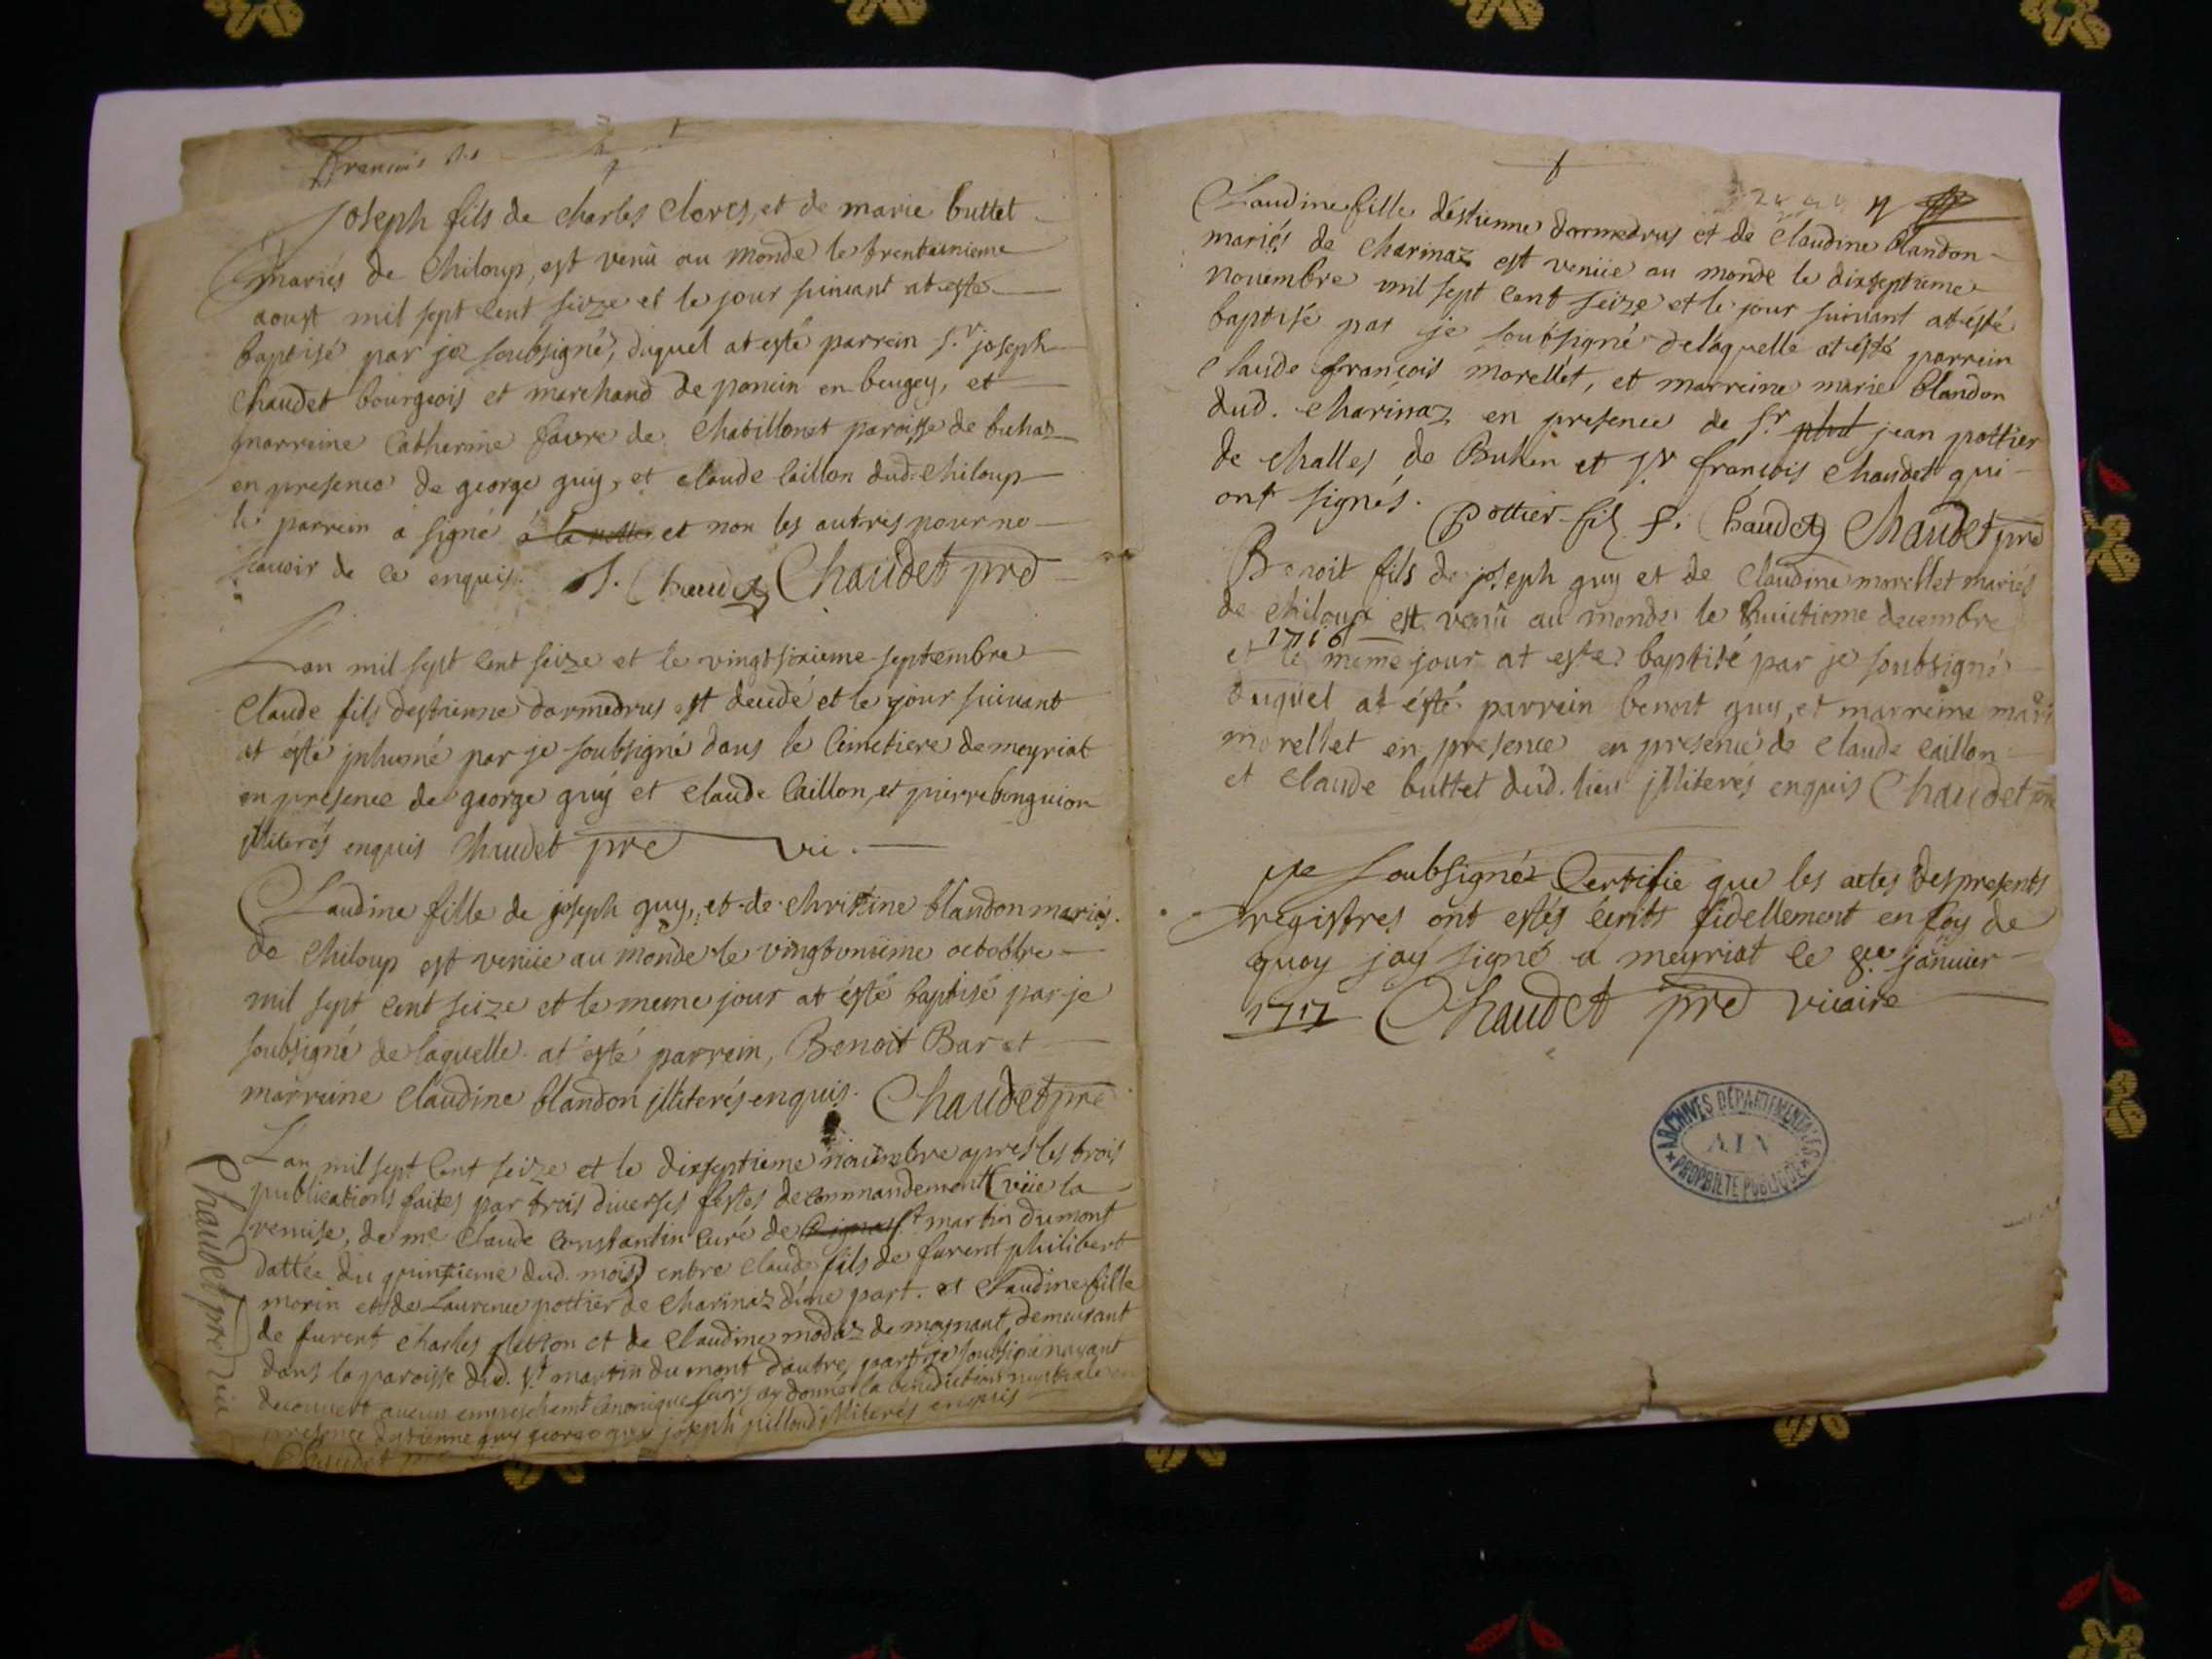 françois
Joseph fils de charles clores, et de marie buttet
mariés de Chiloup, est venû au monde le trentiunieme
aoust mil sept cent seize et le jour suiuant at esté
baptisé par je soubsigné, duquel at esté parrein s.r joseph
Chaudet bourgeois et marchand de poncin en beugey, et
marreine Catherine favre de Chatillonet paroisse de buhas
en presence de george guy, et claude Caillon dud. Chiloup
le parrein a signé et non les autres pour ne
scauoir de ce enquis. J. Chaudet Chaudet pre
Lan mil sept cent seize et le vingtsixieme septembre
Claude fils destienne dormedrus est decedé et le jour suiuant
at esté inhumé par je soubsigné dans le Cimetiere de meyriat
en presence de george guy et claude Caillon, et pierre bonguion
illiterés enquis Chaudet pre vic.
Claudine fille de joseph guy, et de christine blandon mariés
de Chiloup est venüe au monde le vingtunieme octobbre
mil sept cent seize et le meme jour at esté baptisé par je
soubsigné de laquelle at esté parrein, Benoit Bar et
marreine Claudine blandon illiterés enquis. Chaudet pre
Lan mil sept Cent seize et le dixseptieme nouembre apres les trois
publications faites par trois diuerses festes de commandement (vüe la
remise, de me Claude Constantin curé de st martin du mont
dattée du quinzieme dud. mois) entre claude fils de furent philibert
morin et de Laurence pottier de Charinaz d'une part. et Claudine fille
de furent Charles pletton et de Claudine modaz de mognant, demeurant
dans la paroisse dud. st martin du mont dautre part je soubsigné nayant
decouuert aucun empeschemt Canonique leurs ay donné la benediction nuptiale en
presence destienne guy george guy joseph pilloud illiterés enquis
Chaudet pre
Chaudet pre vic
Claudine fille déstienne dormedrus et de Claudine blandon
mariés de Charinaz est venüe au monde le dixseptieme
nouembre mil sept cent seize et le jour suiuant at esté
baptisé par je soubsigné delaquelle at esté parrein
Claude françois morellet, et marreine marie blandon
dud. Charinaz en presence de s.r jean pottier
de challes de Buhen et s.r françois Chaudet qui
ont signés. Pottier fils f. Chaudet Chaudet pre
Benoit fils de joseph guy et de Claudine morellet mariés
de chiloup est venû au monde le huictieme decembre
1716
et le meme jour at esté baptisé par je soubsigné
duquel at ésté parrein benoit guy, et marreine marie
morellet en presence en presence de claude caillon
et claude buttet dud. lieu illiterés enquis Chaudet pre
Je soubsigné Certifie que les actes des presents
registres ont estés écrits fidellement en foy de
quoy jay signé a meyriat ce 8e januier
1717 Chaudet pre vicaire
ARCHIVES DÉPARTEMENTALES
AIN
PROPRIÉTÉ PUBLIQUE